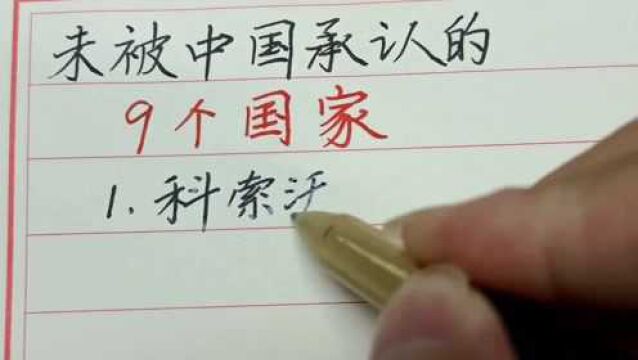 未被中国承认的
9个国家
1.科索沃